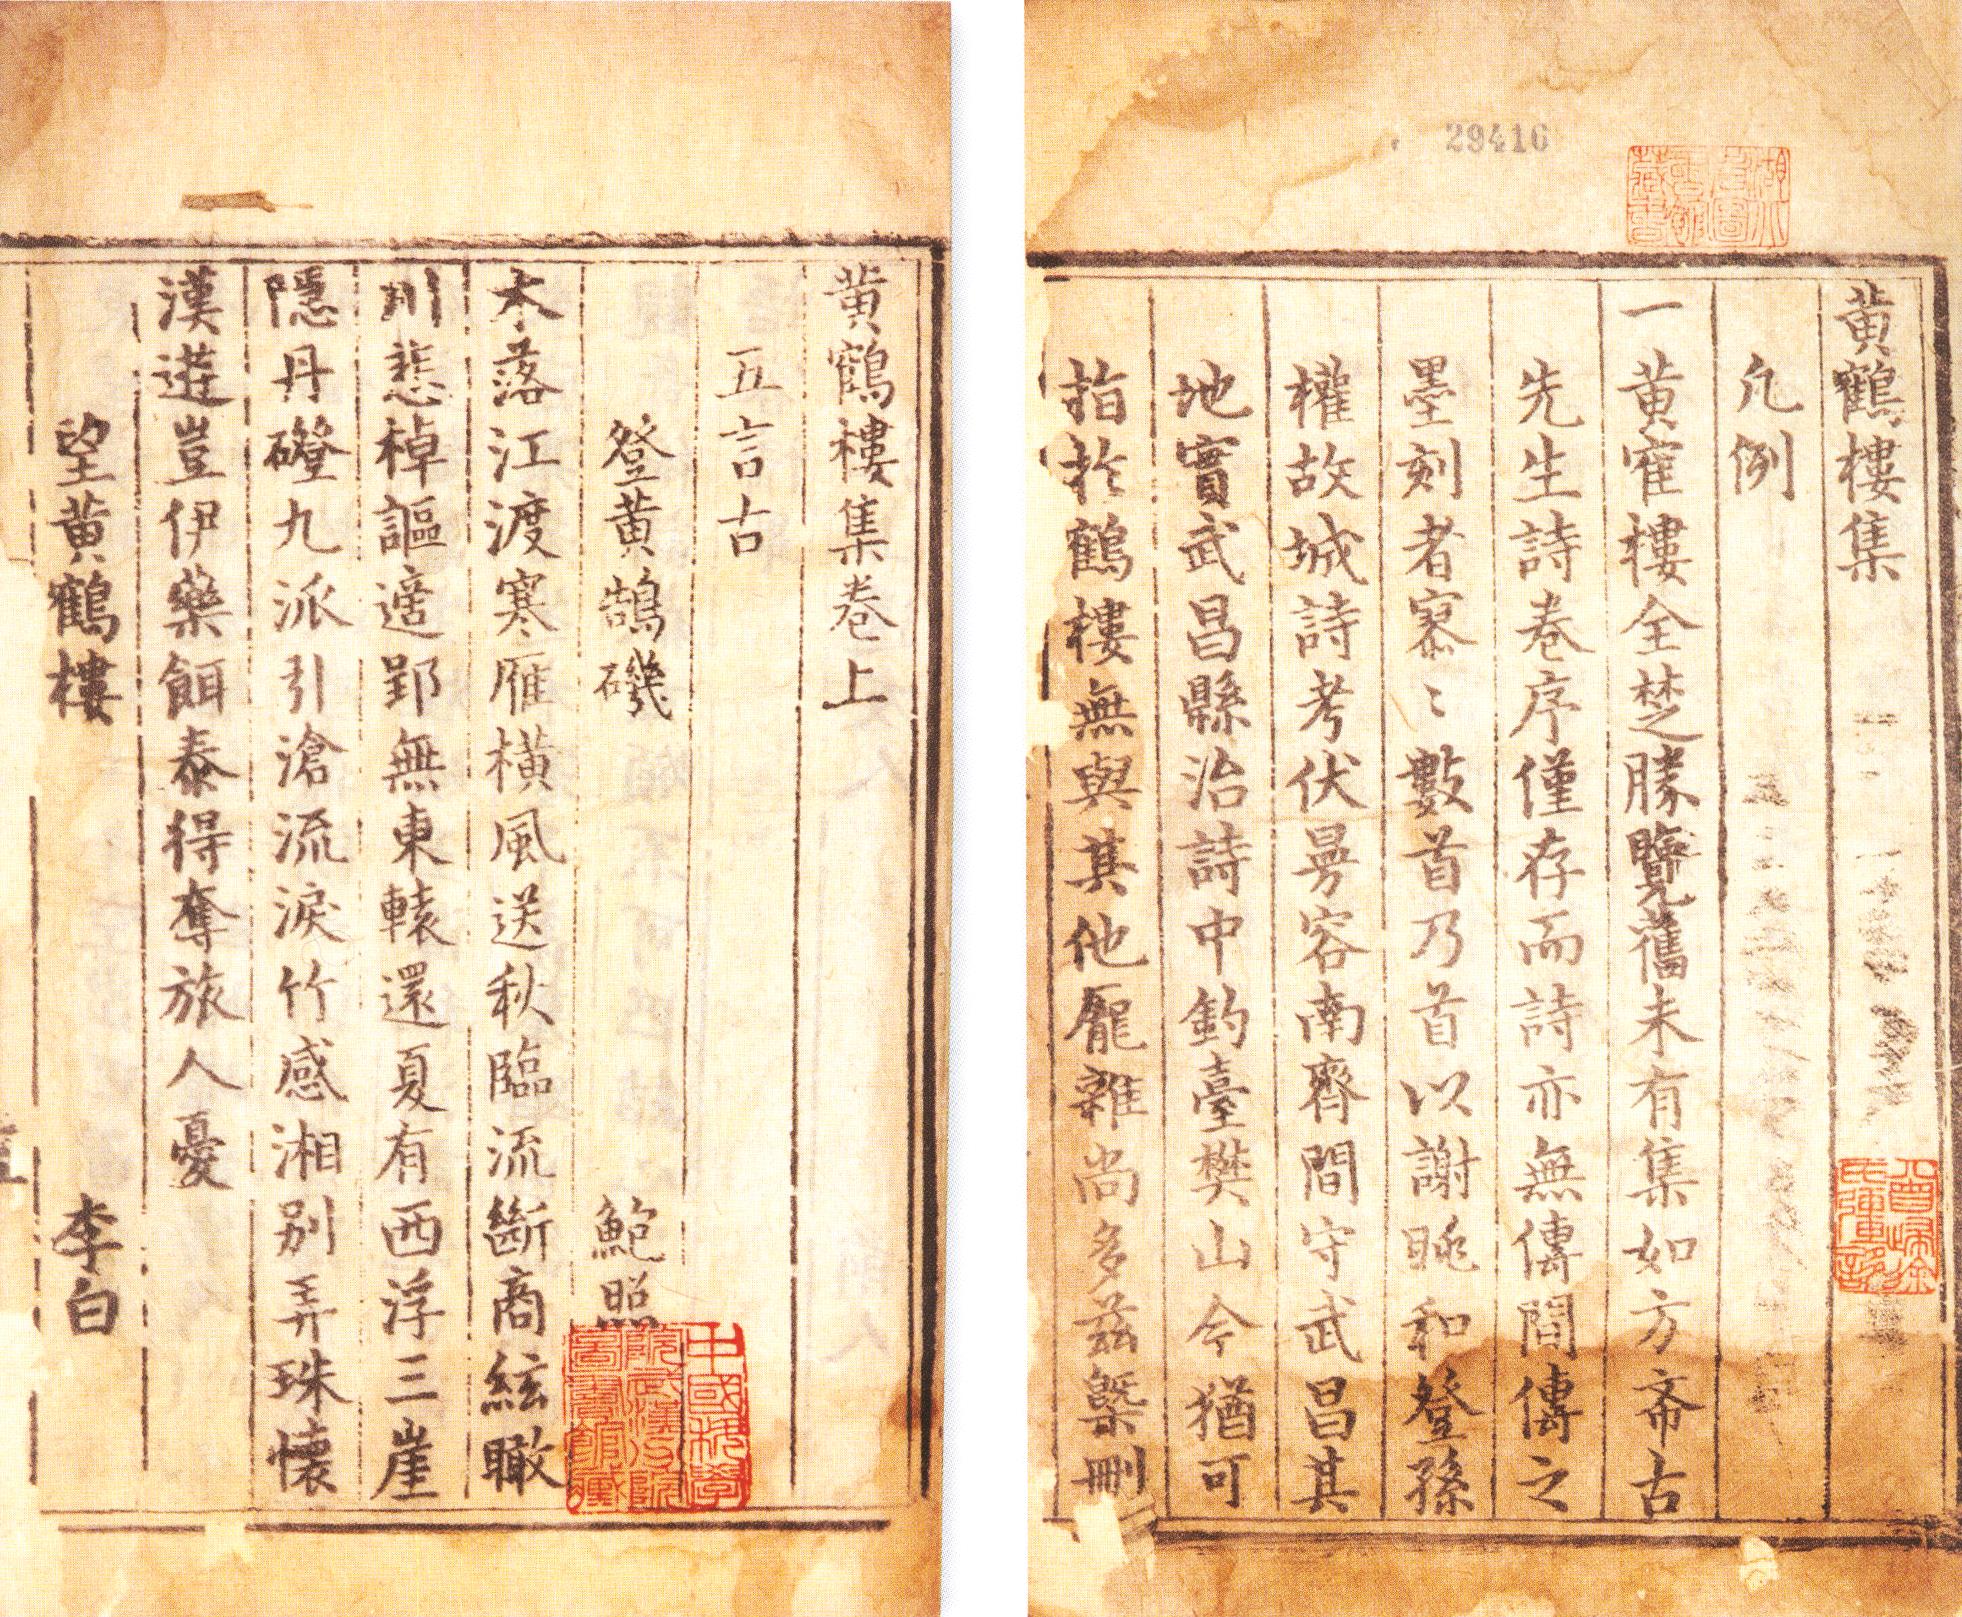 29416
黄鶴樓集
凡例
一黄寉樓全楚勝覽舊未有集如方斋古
先生詩卷序僅存而詩亦無傳間傳之
墨刻者寥〻數首乃首以謝眺和登孫
權故城詩考伏曼容南齊間守武昌其
地實武昌縣治詩中釣臺樊山今猶可
指於鶴樓無與其他龎雜尚多兹槩刪
黄鶴樓集卷上
五言古
登黄鵠磯 鮑照
木落江渡寒雁橫風送秋臨流斷商絃瞰
川悲棹謳適郢無東轅還夏有西浮三崖
隱丹磴九派引滄流淚竹感湘别弄珠懷
漢遊豈伊藥餌泰得奪旅人憂
望黄鶴樓 李白
中國科學院武漢分院圖書館藏